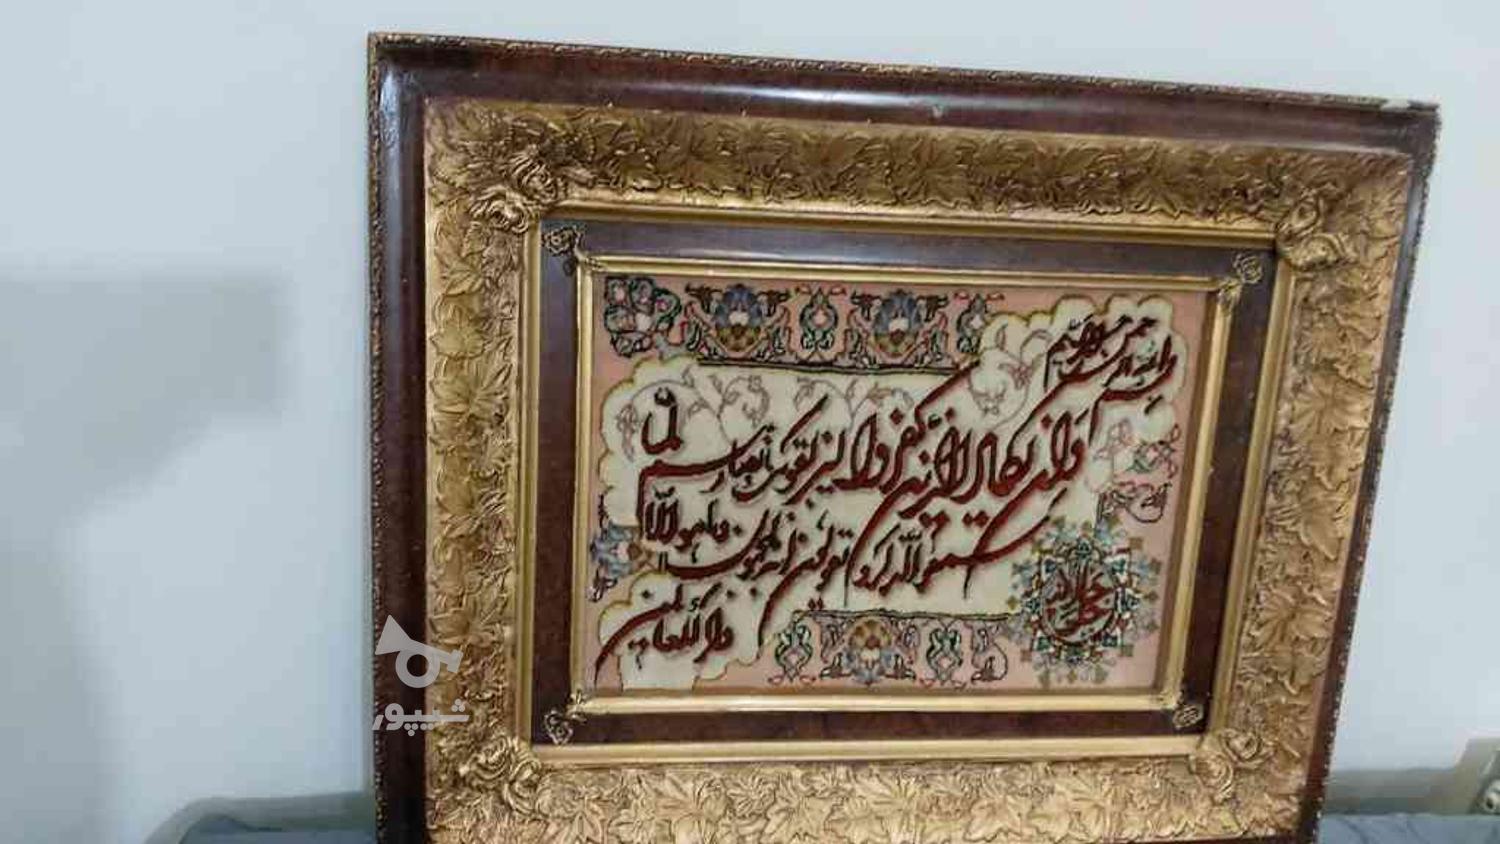 بسم الله الرحمن الرحیم
وان یکاد الذین کفروا لیزلقونک بابصارهم لما
سمعوا الذکر و یقولون انه لمجنون و ما هو الا
ذکر للعالمین
شیپور